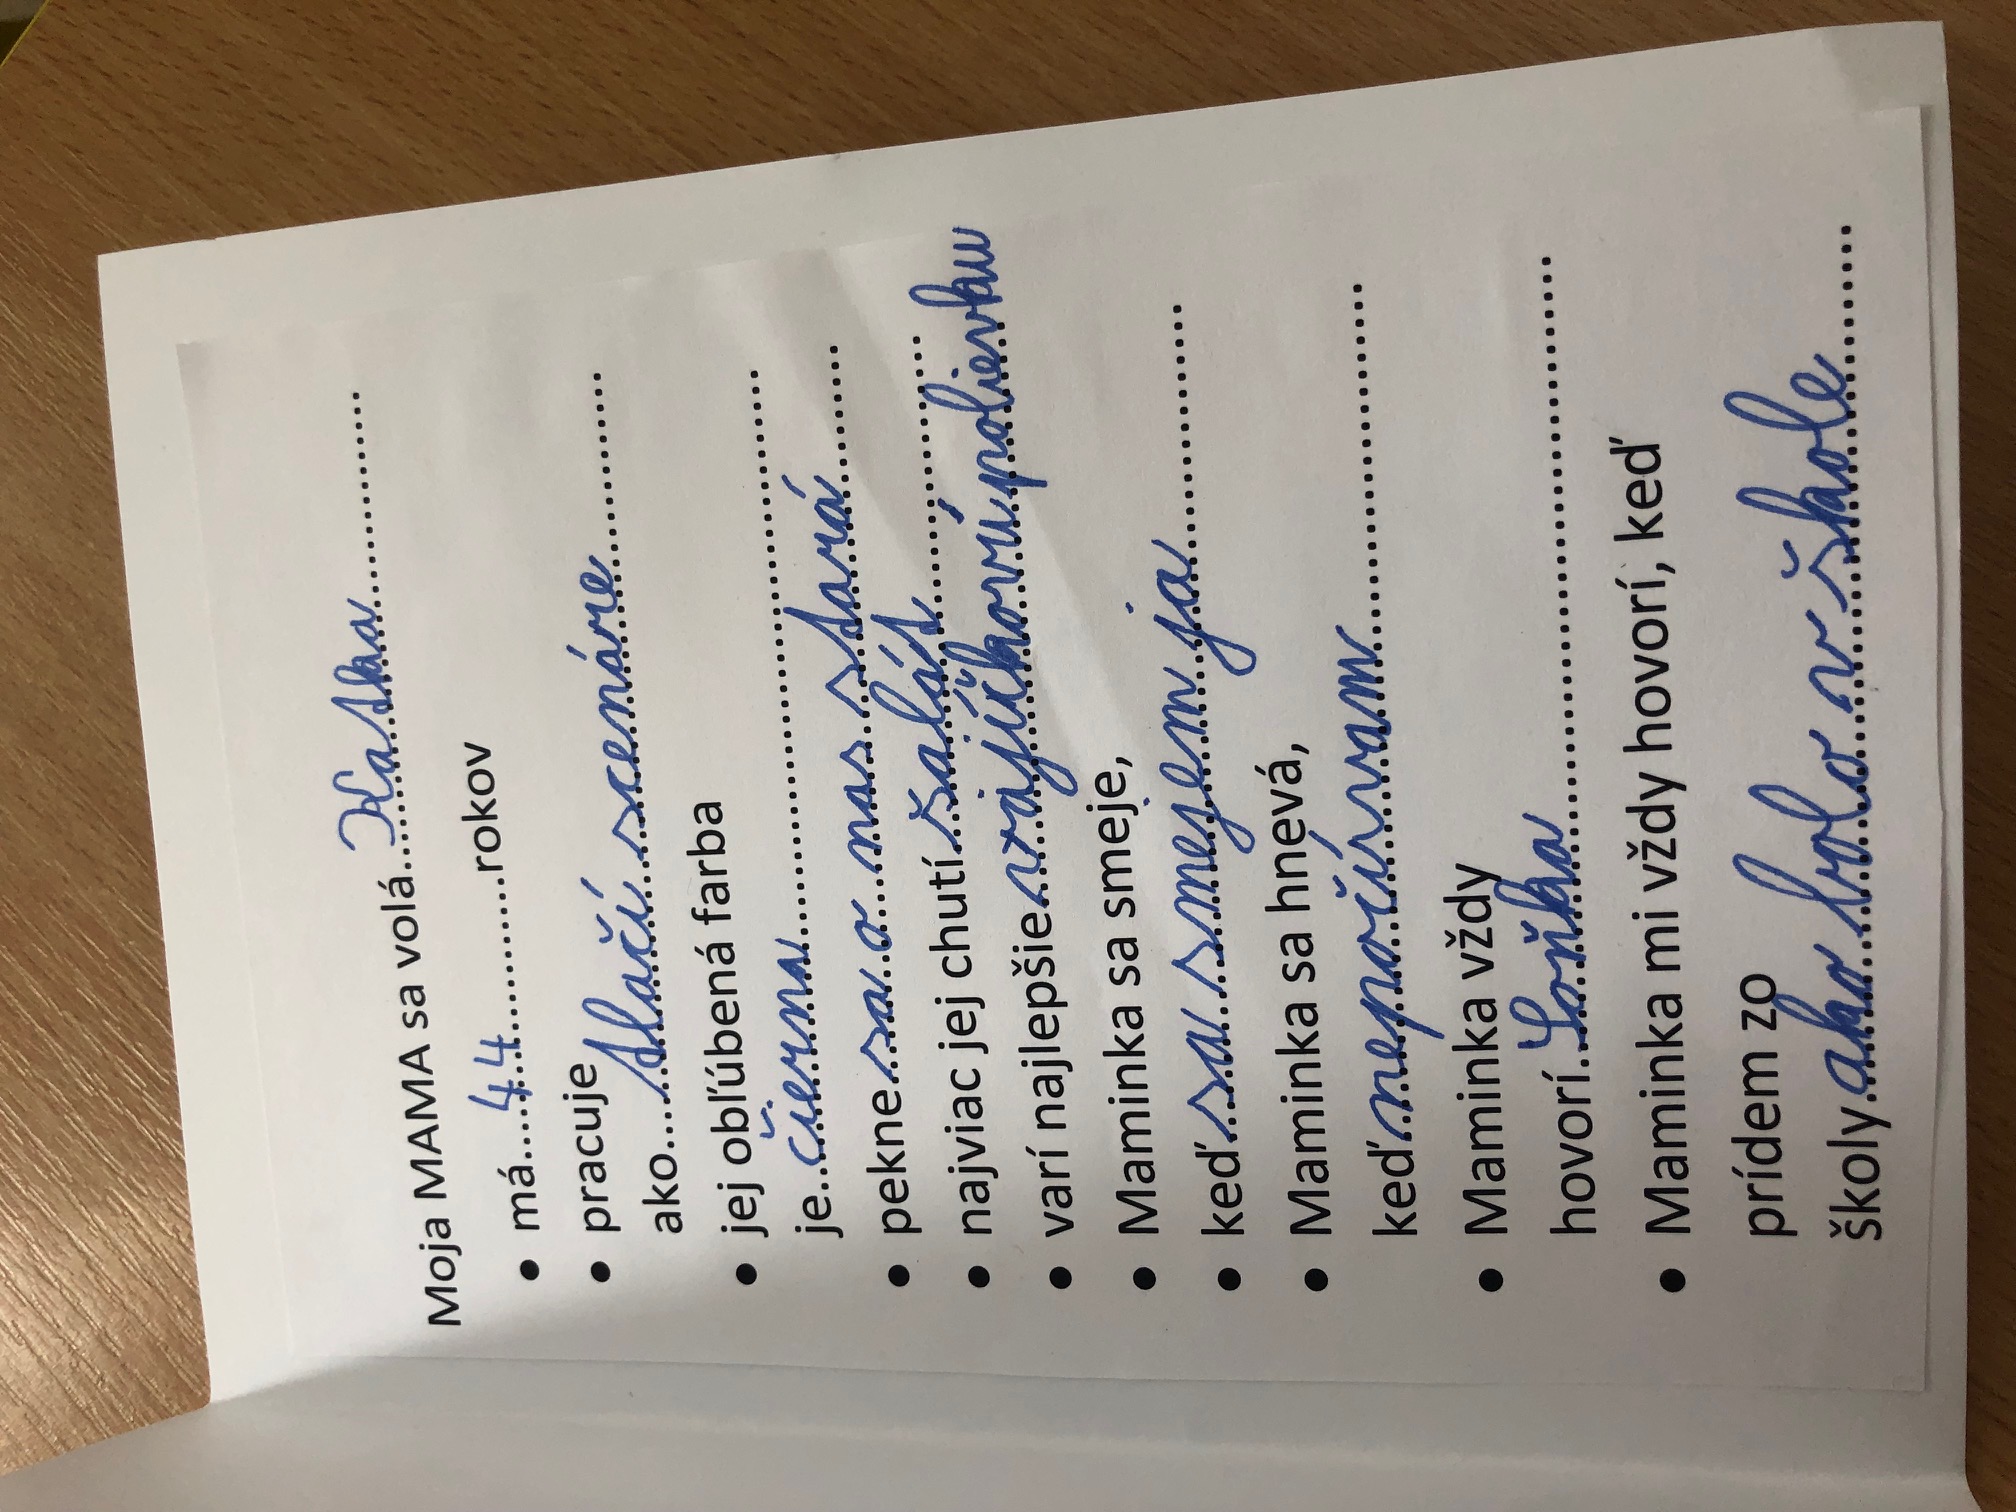 Moja MAMA sa volá.....Katka...............
• má....44............rokov
• pracuje
ako....tlačí scenáre...............
• jej obľúbená farba
je..čierna.......................................
• pekne sa o nas stará..........
• najviac jej chutí šalát..................
• varí najlepšie vajíčkovú polievku
• Maminka sa smeje,
• keď sa smejem ja.................
• Maminka sa hnevá,
keď nepočúvam........................
• Maminka vždy
hovorí..Soňka......................................
• Maminka mi vždy hovorí, keď
prídem zo
školy ako bolo v škole.........